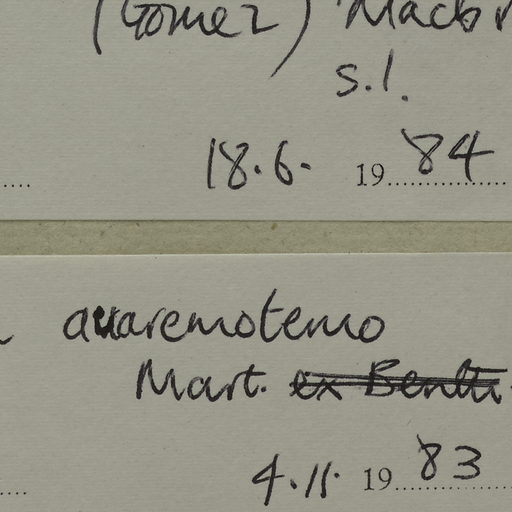 (Gomez) Macbr
s.l.
18.6. 1984
auaremotemo
Mart. ex Benth.
4.11. 1983